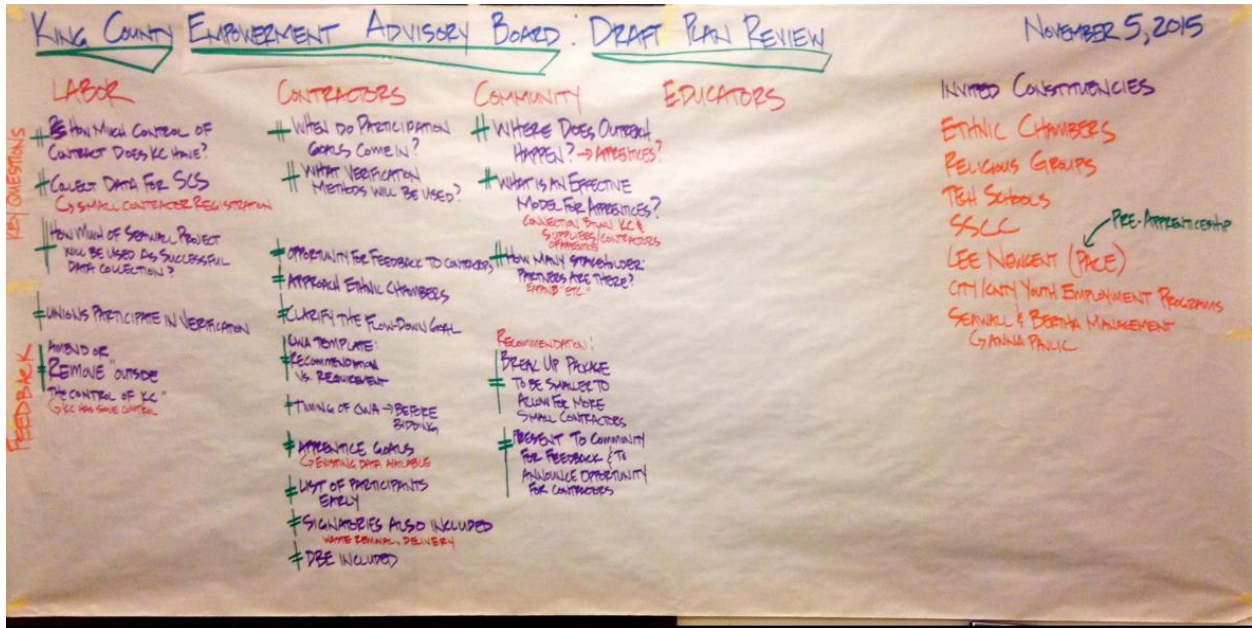 KING COUNTY EMPOWERMENT ADVISORY BOARD: DRAFT PLAN REVIEW
NOVEMBER 5, 2015
KEY QUESTIONS
FEEDBACK
LABOR
HOW MUCH CONTROL OF
CONTRACT DOES KC HAVE?
COLLECT DATA FOR SCS
↳ SMALL CONTRACTOR REGISTRATION
HOW MUCH OF SEAWALL PROJECT
WILL BE USED AS SUCCESSFUL
DATA COLLECTION?
UNIONS PARTICIPATE IN VERIFICATION
AMEND OR
REMOVE "OUTSIDE
THE CONTROL OF KC"
↳ KC HAS SOME CONTROL
CONTRACTORS
WHEN DO PARTICIPATION
GOALS COME IN?
WHAT VERIFICATION
METHODS WILL BE USED?
OPPORTUNITY FOR FEEDBACK TO CONTRACTORS
APPROACH ETHNIC CHAMBERS
CLARIFY THE FLOW-DOWN GOAL
CWA TEMPLATE:
RECOMMENDATION
VS. REQUIREMENT
TIMING OF CWA → BEFORE
BIDDING
APPRENTICE GOALS
↳ EXISTING DATA AVAILABLE
LIST OF PARTICIPANTS
EARLY
SIGNATORIES ALSO INCLUDED
WASTE REMOVAL, DELIVERY
DBE INCLUDED
COMMUNITY
WHERE DOES OUTREACH
HAPPEN? → APPRENTICES?
WHAT IS AN EFFECTIVE
MODEL FOR APPRENTICES?
CONNECTION BTWN KC &
SUPPLIERS/CONTRACTORS
OF APPRENTICES
HOW MANY STAKEHOLDER
PARTNERS ARE THERE?
EXPAND "ETC."
RECOMMENDATION:
BREAK UP PACKAGE
TO BE SMALLER TO
ALLOW FOR MORE
SMALL CONTRACTORS
PRESENT TO COMMUNITY
FOR FEEDBACK & TO
ANNOUNCE OPPORTUNITY
FOR CONTRACTORS
EDUCATORS
INVITED CONSTITUENCIES
ETHNIC CHAMBERS
RELIGIOUS GROUPS
TECH SCHOOLS
SSCC
PRE-APPRENTICESHIP
LEE NEWGENT (PACE)
CITY/CNTY YOUTH EMPLOYMENT PROGRAMS
SEAWALL & BERTHA MANAGEMENT